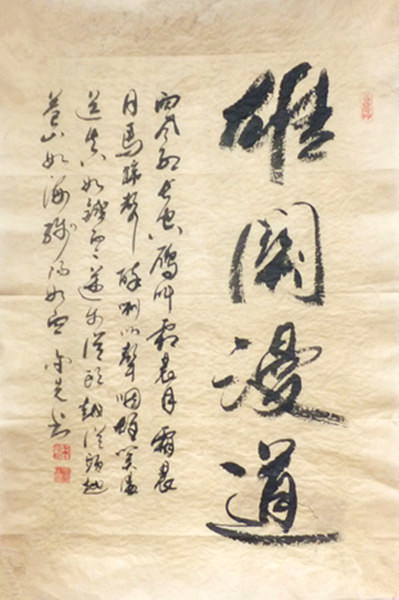 雄關漫道
西风烈长空鴈叫霜晨月霜晨
月馬蹄聲碎喇叭聲咽雄関漫
道真如鐵而今邁步從頭越從頭越
蒼山如海殘陽如血